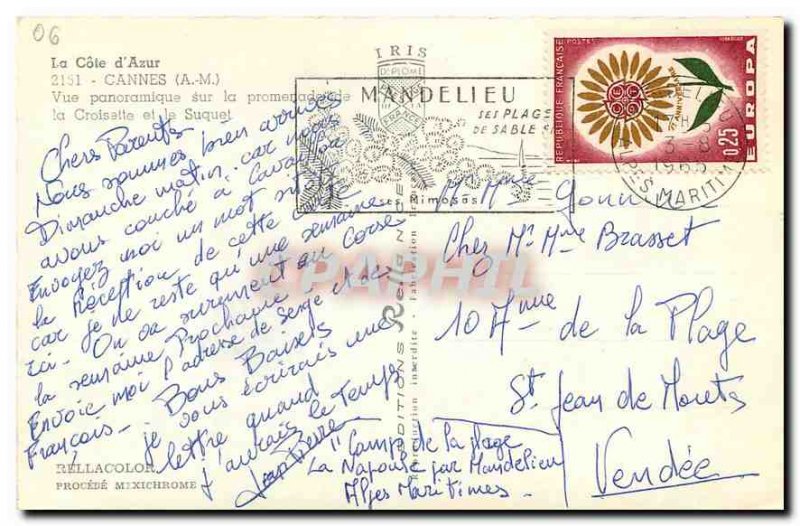 06
La Côte d'Azur
2151 - CANNES (A.-M.)
Vue panoramique sur la promenade de
la Croisette et le Suquet
Chers Parents
Nous sommes bien arrivés
Dimanche matin, car nous
avons couché à Cavaillon
Envoyez moi un mot suite
la Réception de cette carte
car je ne reste qu'une semaine
ici. On va surement en Corse
la semaine Prochaine
Envoie moi l'adresse de Serge et de
François. Bons Baisers
je vous écrirais une
lettre quand
j'aurais le Temps
Jean Pierre
"Camp de la plage
La Napoule par Mandelieu
Alpes Maritimes
RELLACOLOR
PROCÉDÉ MEXICHROME
EDITIONS Rella NICE
Reproduction interdite - Fabrication
IRIS
DIPLOME
FRANCE
MANDELIEU
SES PLAGES
DE SABLE
ses Mimosas
ALPES MARITIMES
REPUBLIQUE FRANÇAISE
POSTES
EUROPA
0,25
CEPT
APHIL
Mr Mme
Chez Mr Mme Brasset
10 A. de la Plage
St Jean de Monts
Vendée